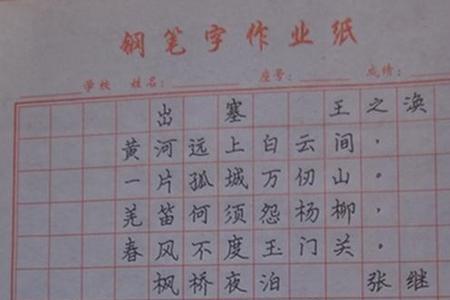 钢笔字作业纸
学校 姓名: 座号: 成绩:
出塞 王之涣
黄河远上白云间，
一片孤城万仞山。
羌笛何须怨杨柳，
春风不度玉门关。
枫桥夜泊 张继